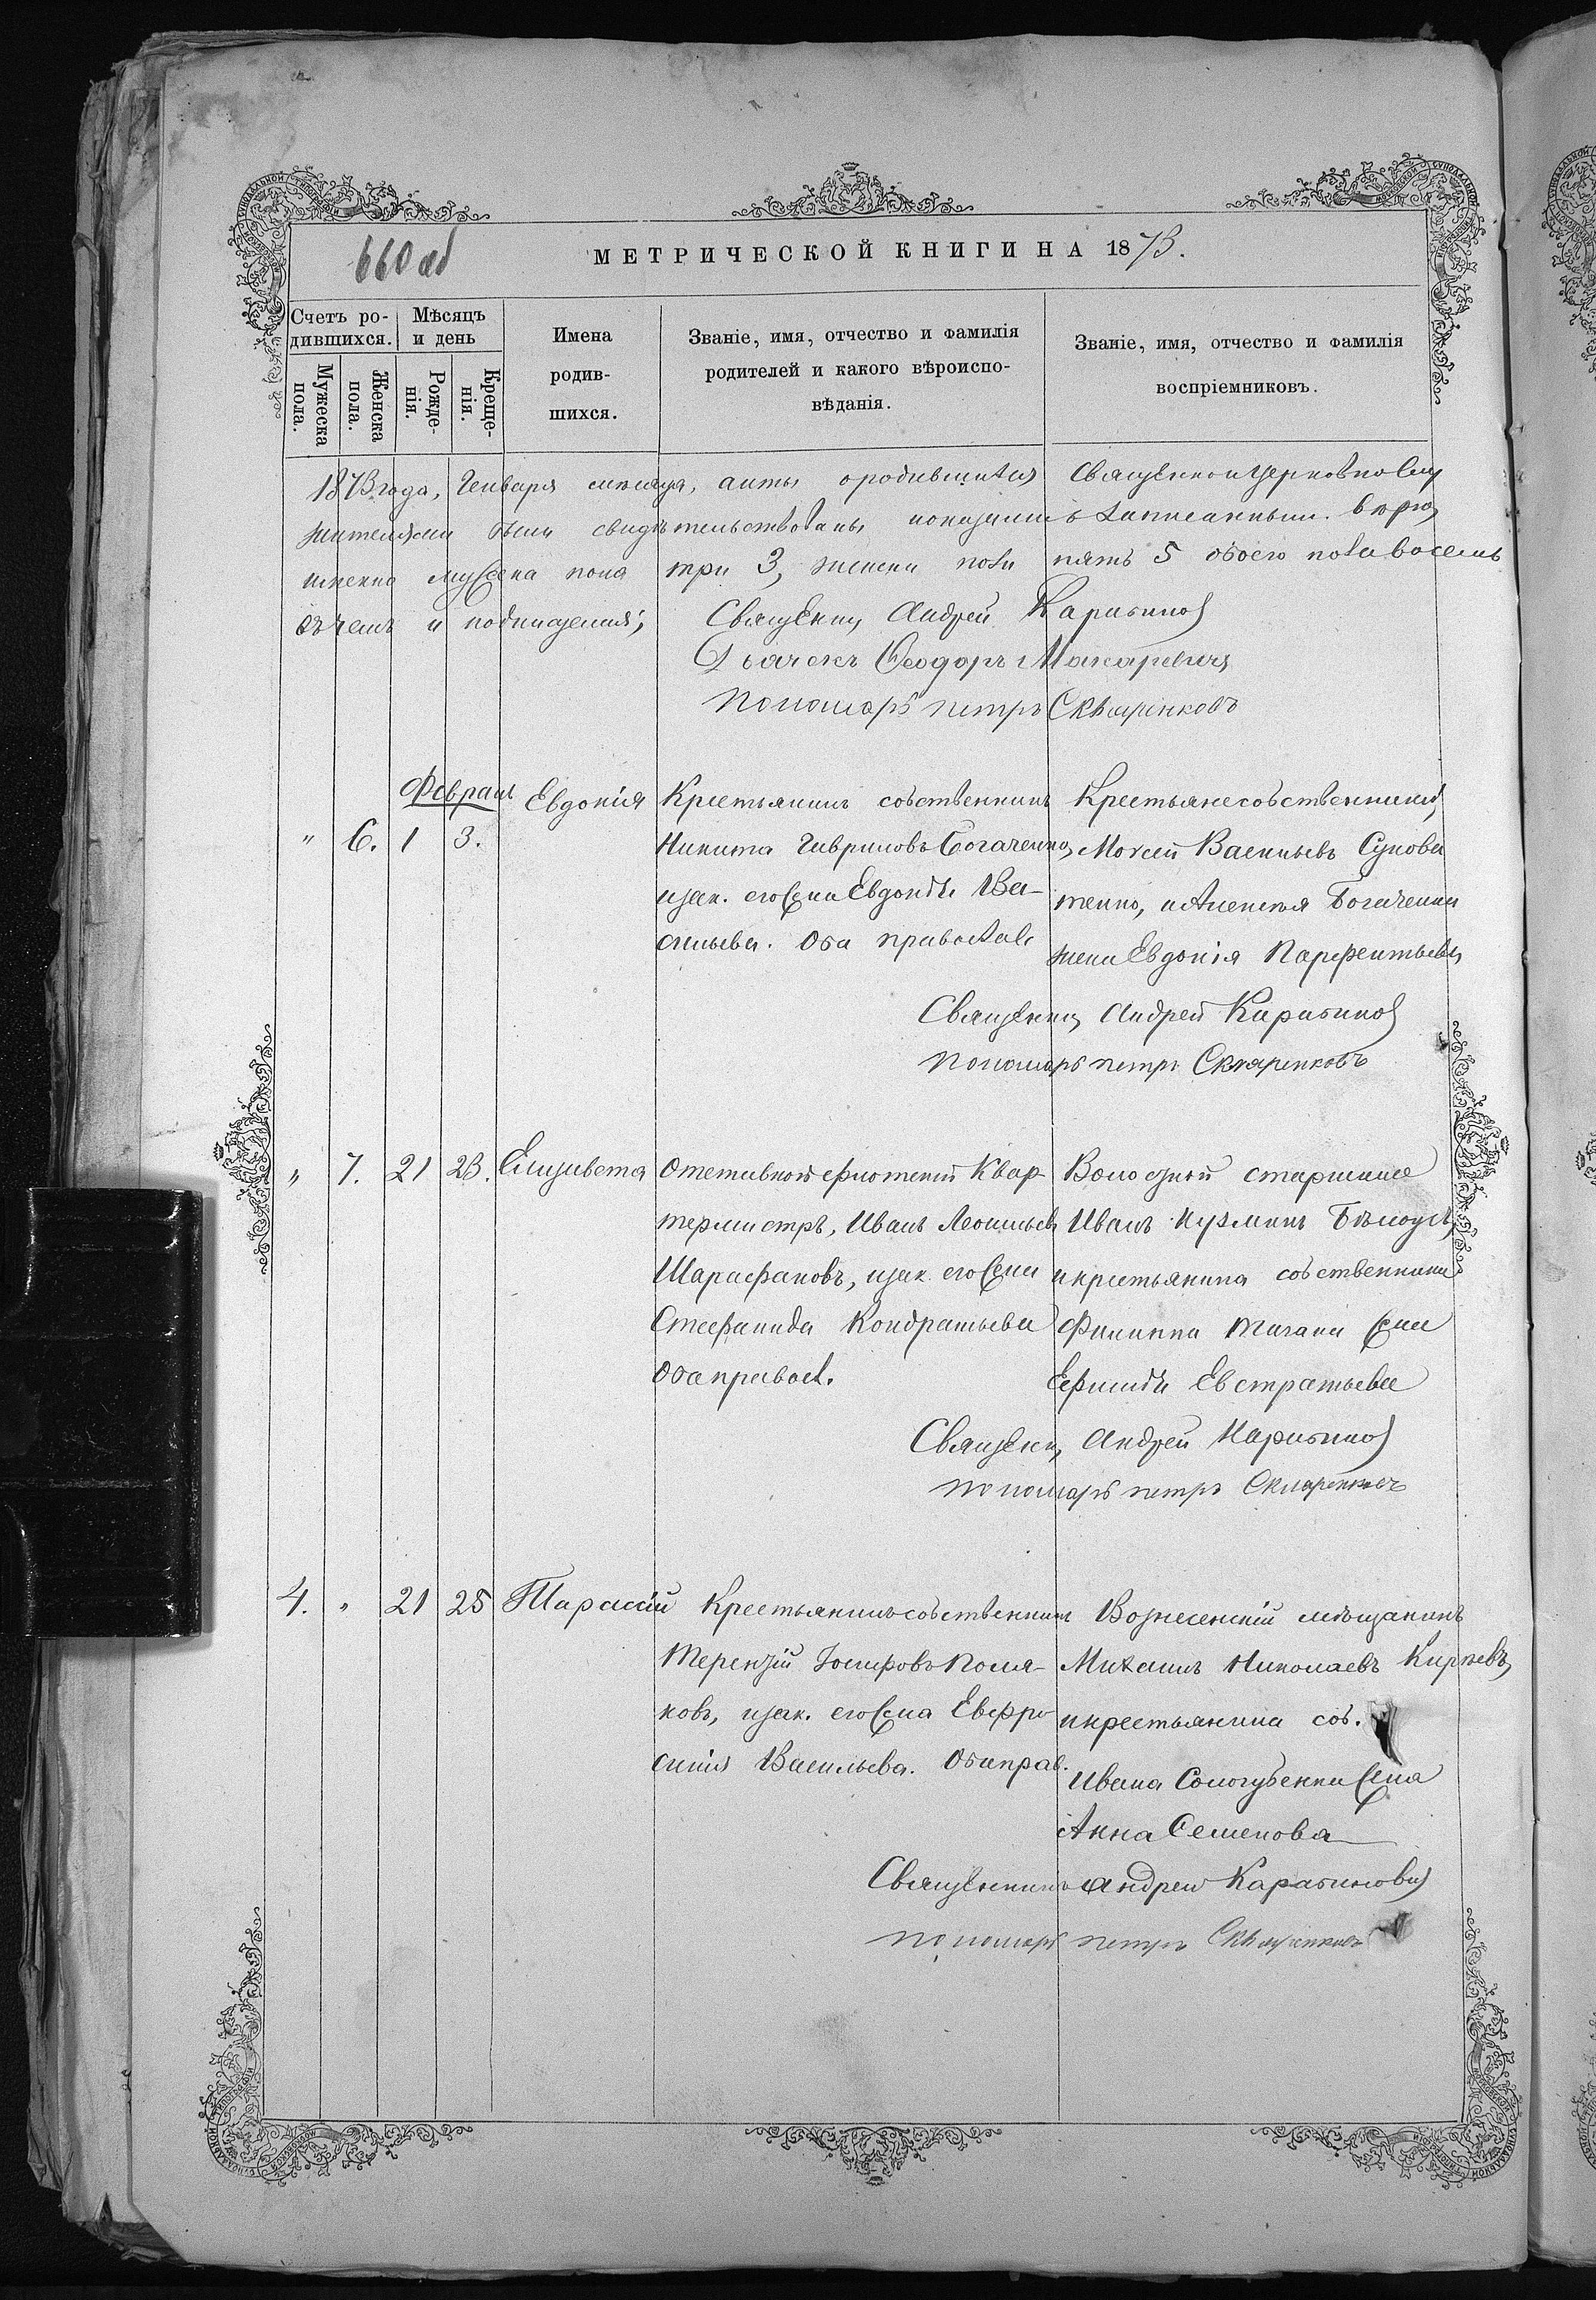 660 об
МЕТРИЧЕСКОЙ КНИГИ НА 1873.
Счетъ ро-
дившихся.
Мужеска
пола.
Женска
пола.
Мѣсяцъ
и день
Рожде-
нія.
Креще-
нія.
Имена
родив-
шихся.
Званіе, имя, отчество и фамилія
родителей и какого вѣроиспо-
вѣданія.
Званіе, имя, отчество и фамилія
воспріемниковъ.
1873 года, Генваря мѣсяца, акты о родившихся Священноцерковнослу
жителями были свидѣтельствованы
именно мужеска пола три 3, женска пола пять 5 обоего пола восемь
въ чемъ и подписуемся;
Священникъ Андрей Карабинов
Дьячекъ Ѳеодоръ Макаревичъ
Пономарь Петръ Скляренковъ
Февраль
" 6. 1 3. Евдокія
Крестьянинъ собственникъ
Никита Гавриловъ Богаченко,
и зак. его жена Евдокія Ва-
сильева. Оба православ
Крестьяне собственники,
Моѵсей Васильевъ
тенко, и Алексѣя Богаченка
жена Евдокія Парфентьева
Священникъ Андрей Карабинов
Пономарь Петръ Скляренковъ
" 7. 21 23. Елизавета
Отставной флотскій Квар
термистръ, Иванъ Леонтьевъ
Шарафановъ, и зак. его жена
Стефанида Кондратьева
Оба правосл.
Волостной старшина
Иванъ Кузминъ Бѣлоусъ,
и крестьянина собственника
Филиппа жена
Евстратьева
Священникъ Андрей Карабинов
Пономарь Петръ Скляренковъ
4. " 21 25 Тарасій
Крестьянинъ собственникъ
Терентій Іосифовъ Поля-
ковъ, и зак. его жена Евфро
синія Васильева. Оба прав.
Вознесенскій мѣщанинъ
Михаилъ Николаевъ
и крестьянина соб.
Ивана Сологубенка жена
Анна Семенова
Священникъ Андрей Карабинов
Пономарь Петръ Скляренковъ